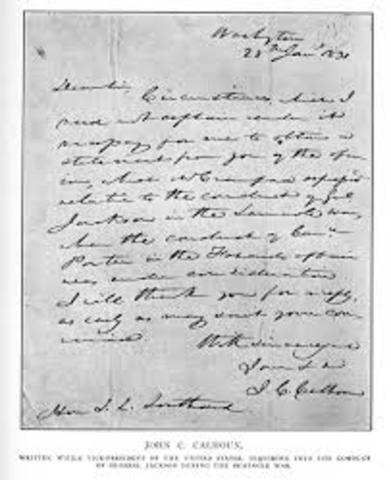 Washington
28th Jan 1831
Dear Sir,
Circumstances, which I
need not explain render it
necessary for me to obtain a
statement from you of the
in, what Mr Crawford
relative to the conduct of Genl
Jackson in the Seminole war,
when the conduct of
Porter in the affair
was under consideration
I will thank you for a reply,
as early as may suit your con
With sincere
I am & &
J. C. Calhoun
Hon S. L. Southard
JOHN C. CALHOUN,
WRITTEN WHILE VICE-PRESIDENT OF THE UNITED STATES, INQUIRING INTO THE CONDUCT
OF GENERAL JACKSON DURING THE SEMINOLE WAR.